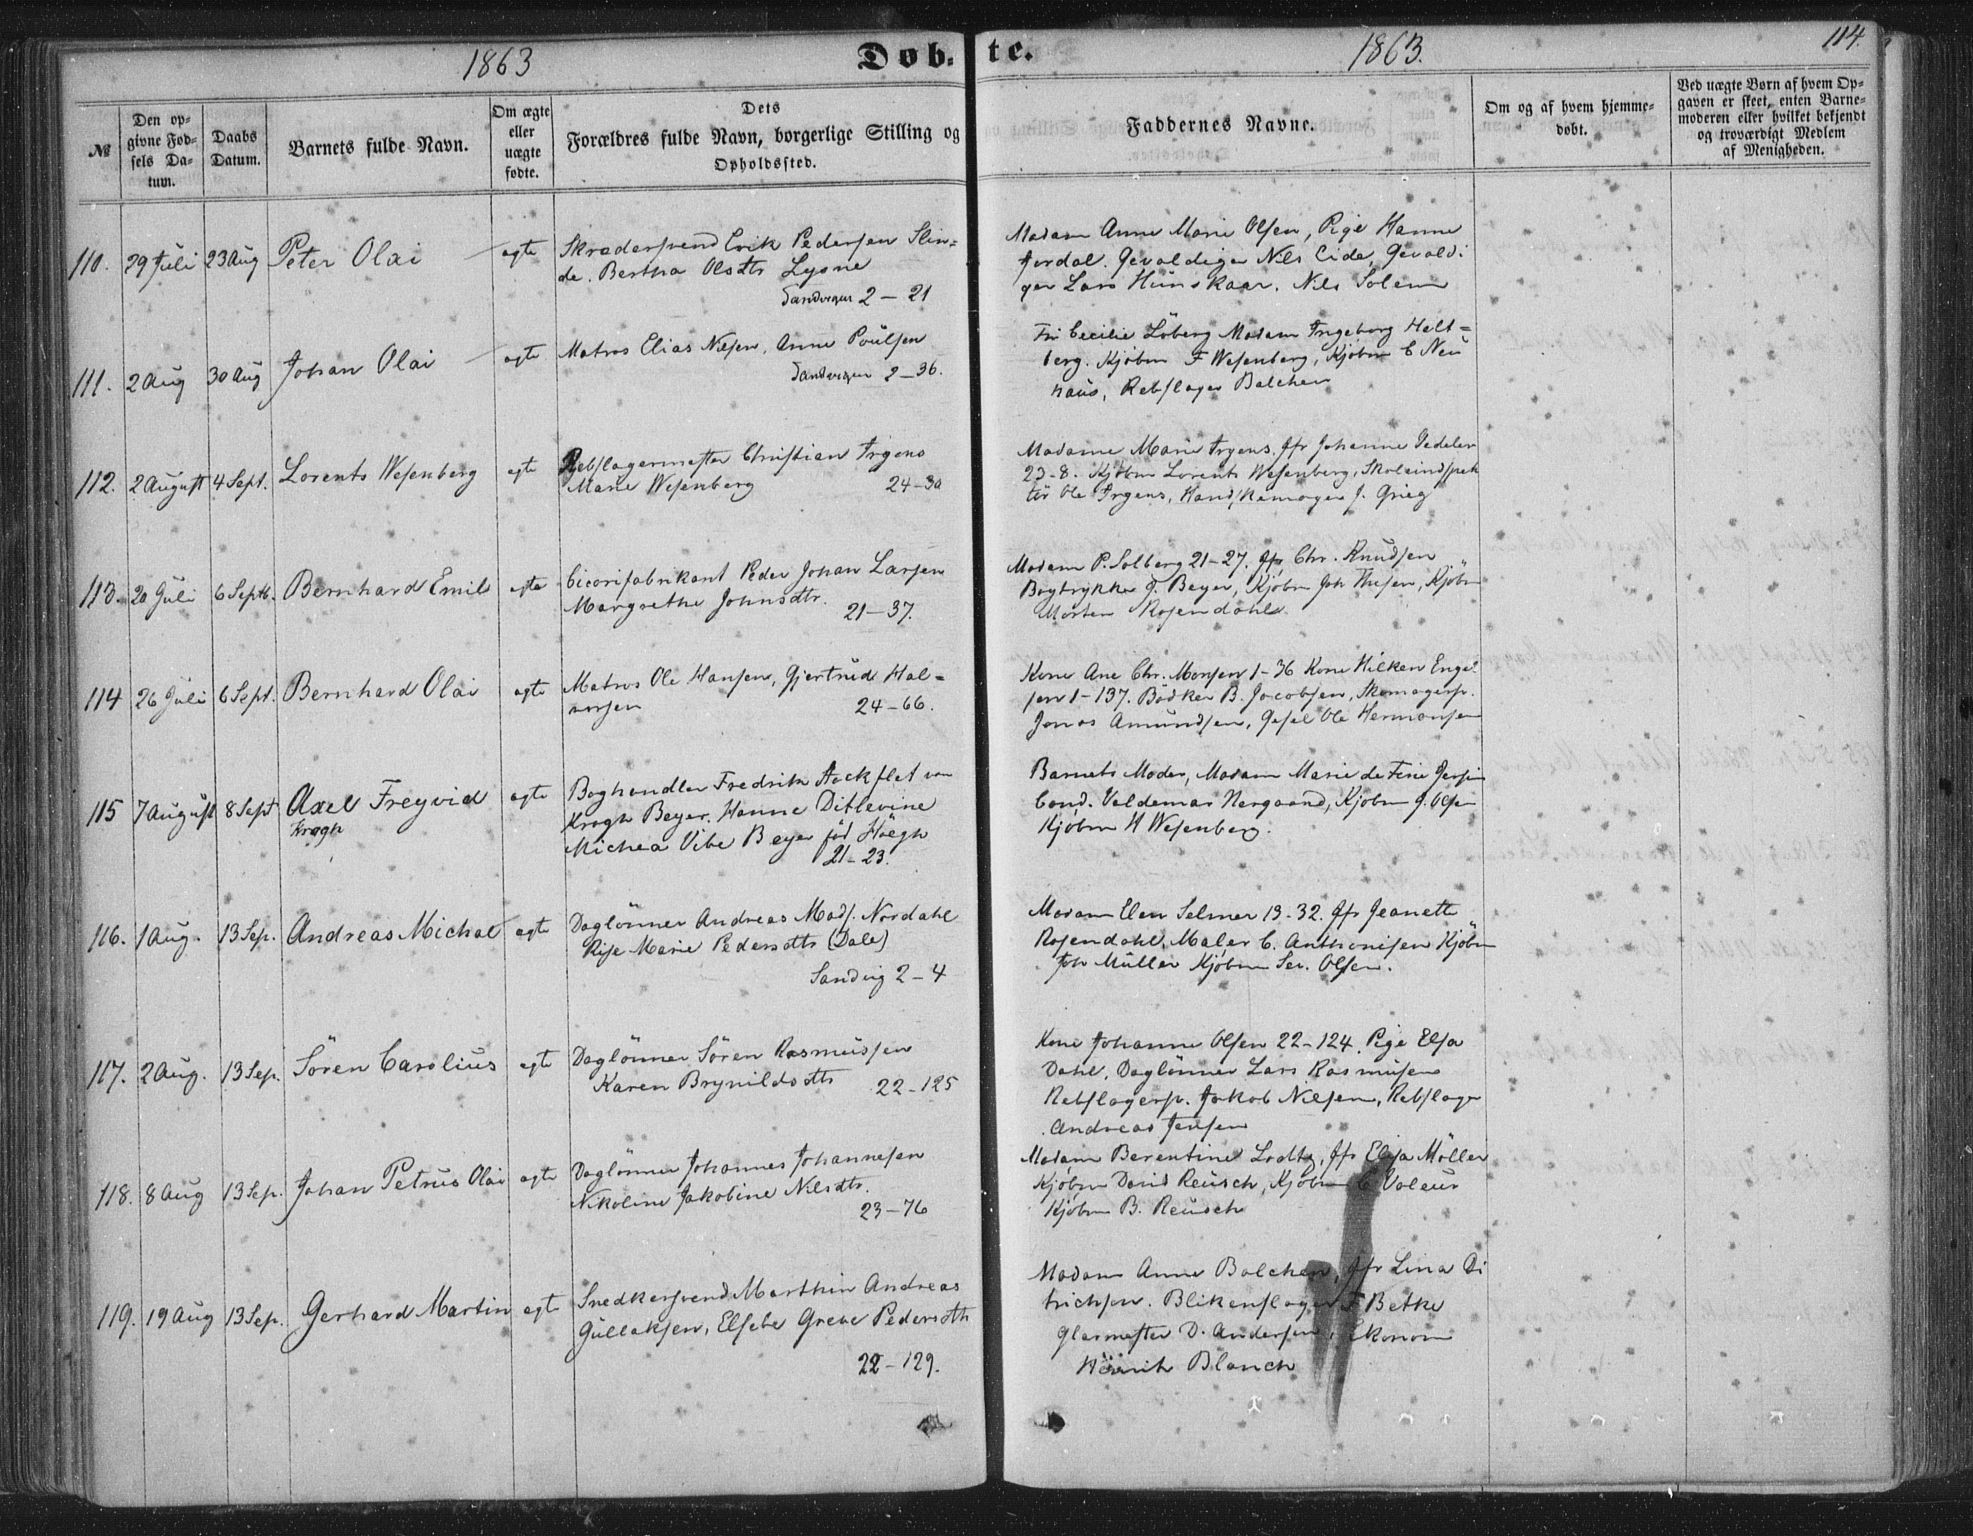 1863
Døb-
te.
1863.
114.
№
Den op-
givne Fød-
sels Da-
tum.
Daabs
Datum.
Barnets fulde Navn.
Om ægte
eller
uægte
fødte.
Dets
Forældres fulde Navn, borgerlige Stilling og
Opholdssted.
Faddernes Navne.
Om og af hvem hjemme-
døbt.
Ved uægte Børn af hvem Op-
gaven er skeet, enten Barne-
moderen eller hvilket bekjendt
og troværdigt Medlem
af Menigheden.
110. 29 Juli 23 Aug Peter Olai ægte Skrædersvend Erik Pedersen Slin-
de. Bertha Olsdtr Lysne
Sandvigen 2-21
Madam Anne Marie Olsen, Pige Hanne
Jordal. Gevaldiger Nils Eide, Gevaldi
ger Lars Hunskaar. Nils Solem
111. 2 Aug 30 Aug Johan Olai ægte Matros Elias Nilsen, Anne Poulsen
Sandvigen 2-36.
Fru Cecilie Löberg Madam Ingeborg Helt-
berg. Kjøbm F Wesenberg, Kjøbm C Neu
haus, Rebslager Balchen
112. 2 August 4 Sept. Lorents Wesenberg ægte Rebslagermester Christian Irgens
Marie Wesenberg 24-30
Madame Marie Irgens. Jfr Johanne Dedeler
23-8. Kjøbm Lorents Wesenberg, Skoleinspek
tör Ole Irgens, Handskemager J. Grieg
113. 20 Juli 6 Septb. Bernhard Emil ægte Cicorifabrikant Peder Johan Larsen
Margrethe Johnsdtr. 21-37.
Madam P. Solberg 21-27. Jfr Chr. Knudsen
Bogtrykker F. Beyer, Kjøbm Joh Thesen, Kjøbm
Morten Rosendahl
114 26 Juli 6 Sept. Bernhard Olai ægte Matros Ole Hansen, Gjertrud Hal-
vorsen 24-66.
Kone Ane Chr. Monsen 1-36 Kone Hilken Engel
sen 1-137. Bödker B. Jacobsen, Skomagersv.
Jonas Amundsen, Gesel Ole Hermansen
115 7 August 8 Sept Axel Freyvid
Krogh
ægte Boghandler Fredrik
Krogh Beyer. Hanne Ditlevine
Michea Vibe Beyer föd Höegh
21-23.
Barnets Moder, Madam Marie de Fine
Cand. Valdemar Nergaard, Kjøbm J. Olsen
Kjøbm H Wesenberg.
116. 1 Aug. 13 Sep. Andreas Michal ægte Daglönner Andreas Mads. Nordahl
Rise Marie Pedersdtr (Dale)
Sandvig 2-4
Madam Elen Selmer 13-32. Jfr Jeanette
Rosendahl, Maler C. Anthonisen Kjöbm
Joh Müller Kjøbm Sev. Olsen.
117. 2 Aug. 13 Sep. Sören Carolius ægte Daglönner Sören Rasmussen
Karen Brynildsdtr 22-125
Kone Johanne Olsen 22-124. Pige Elsa
Dahl, Daglönner Lars Rasmusen
Rebslagersv. Jakob Nilsen, Rebslager
Andreas Jensen
118. 8 Aug 13 Sep. Johan Petrus Olai ægte Daglönner Johannes Johannesen
Nikoline Jakobine Nilsdtr.
23-76
Madam Berentine, Jfr Elisa Möller
Kjøbm David Reusch, Kjøbm C Valeur
Kjøbm B. Reusch
119. 19 Aug 13 Sep. Gerhard Martin ægte Snedkersvend Marthin Andreas
Gullaksen, Elsebe Greve Pedersdtr
22-129.
Madam Anne Balchen, Jfr Lina Di
trichsen. Blikenslager F Betke
Glarmester D. Andersen, Ekonom
Henrik Blanch